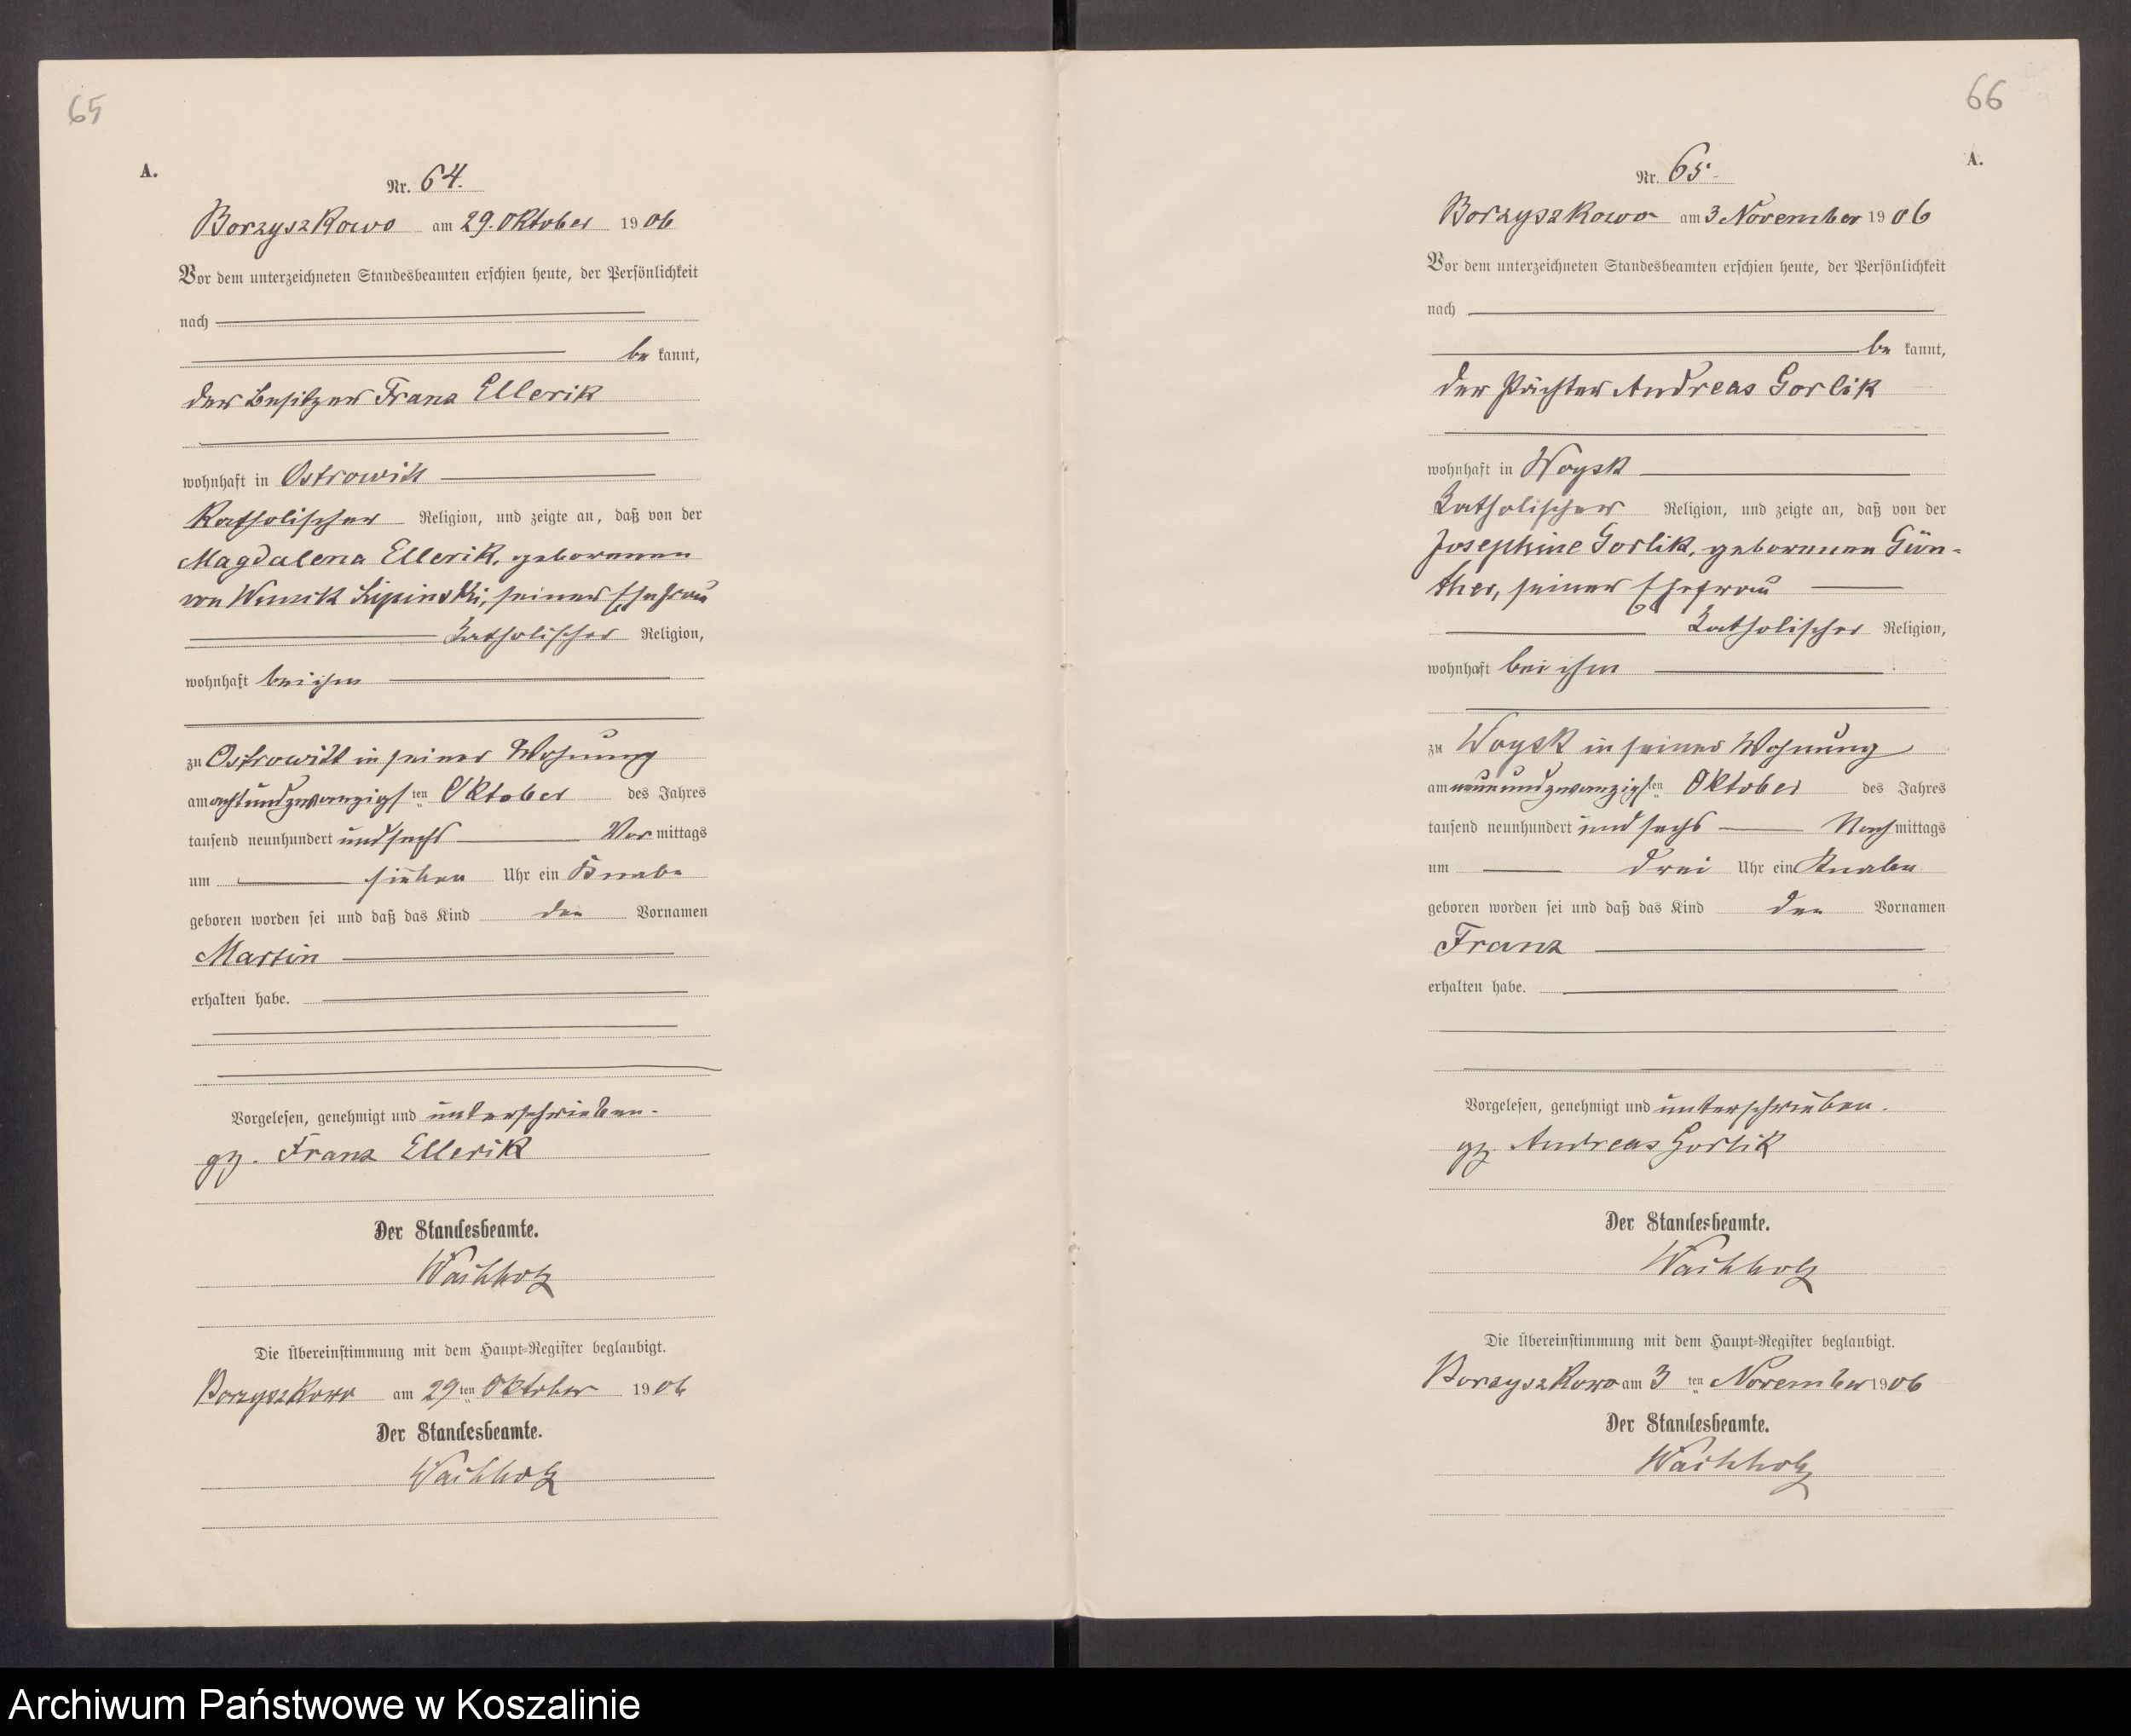 65
A.
Nr. 64.
Borzyszkowo am 29. Oktober 1906
Vor dem unterzeichneten Standesbeamten erschien heute, der Persönlichkeit
nach
be kannt,
der Besitzer Franz Ellerik
wohnhaft in Ostrowitt
katholischer Religion, und zeigte an, daß von der
Magdalena Ellerik, geborenen
von Lipinski, seiner Ehefrau
katholischer Religion,
wohnhaft bei ihm
zu Ostrowitt in seiner Wohnung
am achtundzwanzigsten Oktober des Jahres
tausend neunhundert und sechs Vormittags
um sieben Uhr ein Knabe
geboren worden sei und daß das Kind den Vornamen
Martin
erhalten habe.
Vorgelesen, genehmigt und unterschrieben.
gz. Franz Ellerik
Der Standesbeamte.
Wachholz
Die Übereinstimmung mit dem Haupt-Register beglaubigt.
Borzyszkowo am 29ten Oktober 1906
Der Standesbeamte.
Wachholz
66
A.
Nr. 65.
Borzyszkowo am 3 November 1906
Vor dem unterzeichneten Standesbeamten erschien heute, der Persönlichkeit
nach
be kannt,
der Pächter Andreas Gorlik
wohnhaft in Woysk
katholischer Religion, und zeigte an, daß von der
Josephine Gorlik, geborenen Gün-
ther, seiner Ehefrau
katholischer Religion,
wohnhaft bei ihm
zu Woysk in seiner Wohnung
am neunundzwanzigsten Oktober des Jahres
tausend neunhundert und sechs Nachmittags
um drei Uhr ein Knabe
geboren worden sei und daß das Kind den Vornamen
Franz
erhalten habe.
Vorgelesen, genehmigt und unterschrieben.
gz. Andreas Gorlik
Der Standesbeamte.
Wachholz
Die Übereinstimmung mit dem Haupt-Register beglaubigt.
Borzyszkowo am 3 ten November 1906
Der Standesbeamte.
Wachholz
Archiwum Państwowe w Koszalinie